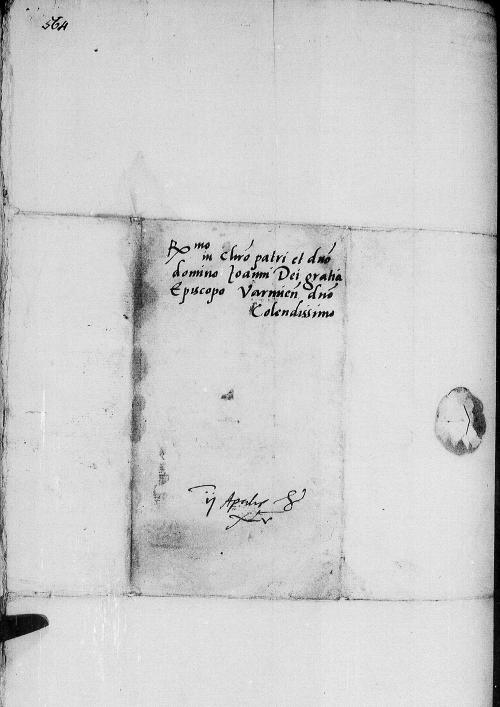 564
R mo
in Chro patri et dno
domino Joanni Dei gratia
Episcopo Varmien dno
Colendissimo
ij